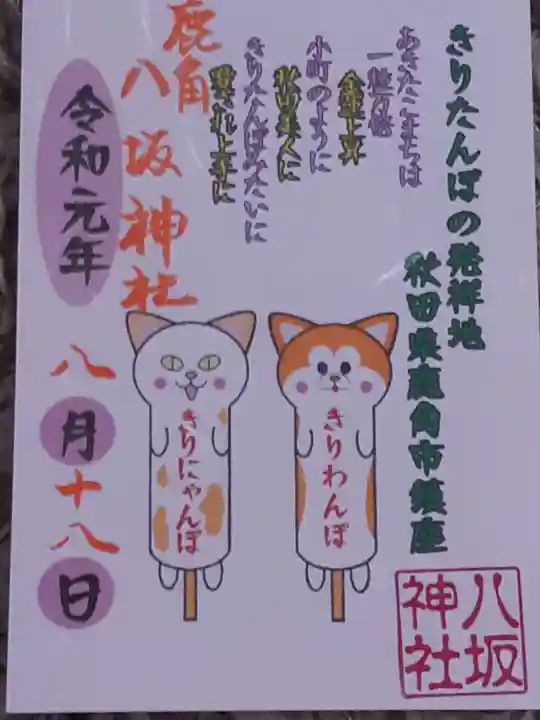 きりたんぽの発祥地
秋田県鹿角市鎮座
あきたこまちは
一粒万倍
金運上昇
小町のように
秋田美人に
きりたんぽみたいに
鹿角
八坂神社
令和元年
八月十八日
きりわんぽ
きりにゃんぽ
八坂
神社